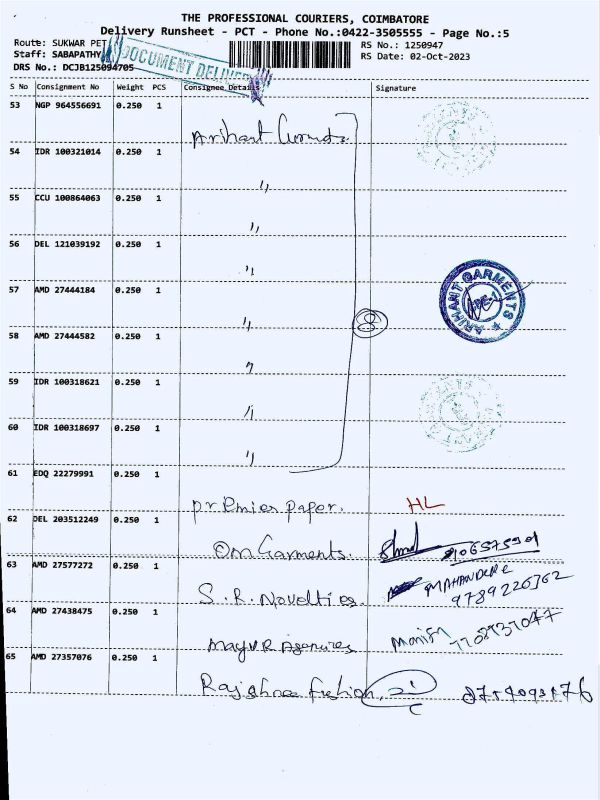 THE PROFESSIONAL COURIERS, COIMBATORE
Delivery Runsheet - PCT - Phone No.:0422-3505555 - Page No.:5
Route: SUKWAR PET
RS No.: 1250947
Staff: SABAPATHY
RS Date: 02-Oct-2023
DRS No.: DCJB125094705
DOCUMENT DELIVER
S No Consignment No Weight PCS Consignee Details Signature
53 NGP 964556691 0.250 1
Arihant
54 IDR 100321014 0.250 1
"
55 CCU 100864063 0.250 1
"
56 DEL 121039192 0.250 1
"
57 AMD 27444184 0.250 1
ARIHANT GARMENTS
" 8
58 AMD 27444582 0.250 1
"
59 IDR 100318621 0.250 1
"
60 IDR 100318697 0.250 1
"
61 EDQ 22279991 0.250 1
premier paper. HL
62 DEL 203512249 0.250 1
Om Garments.
63 AMD 27577272 0.250 1
S.R. Novelties. 9789226362
64 AMD 27438475 0.250 1
Mayur Agencies
65 AMD 27357076 0.250 1
Rajshree fashion